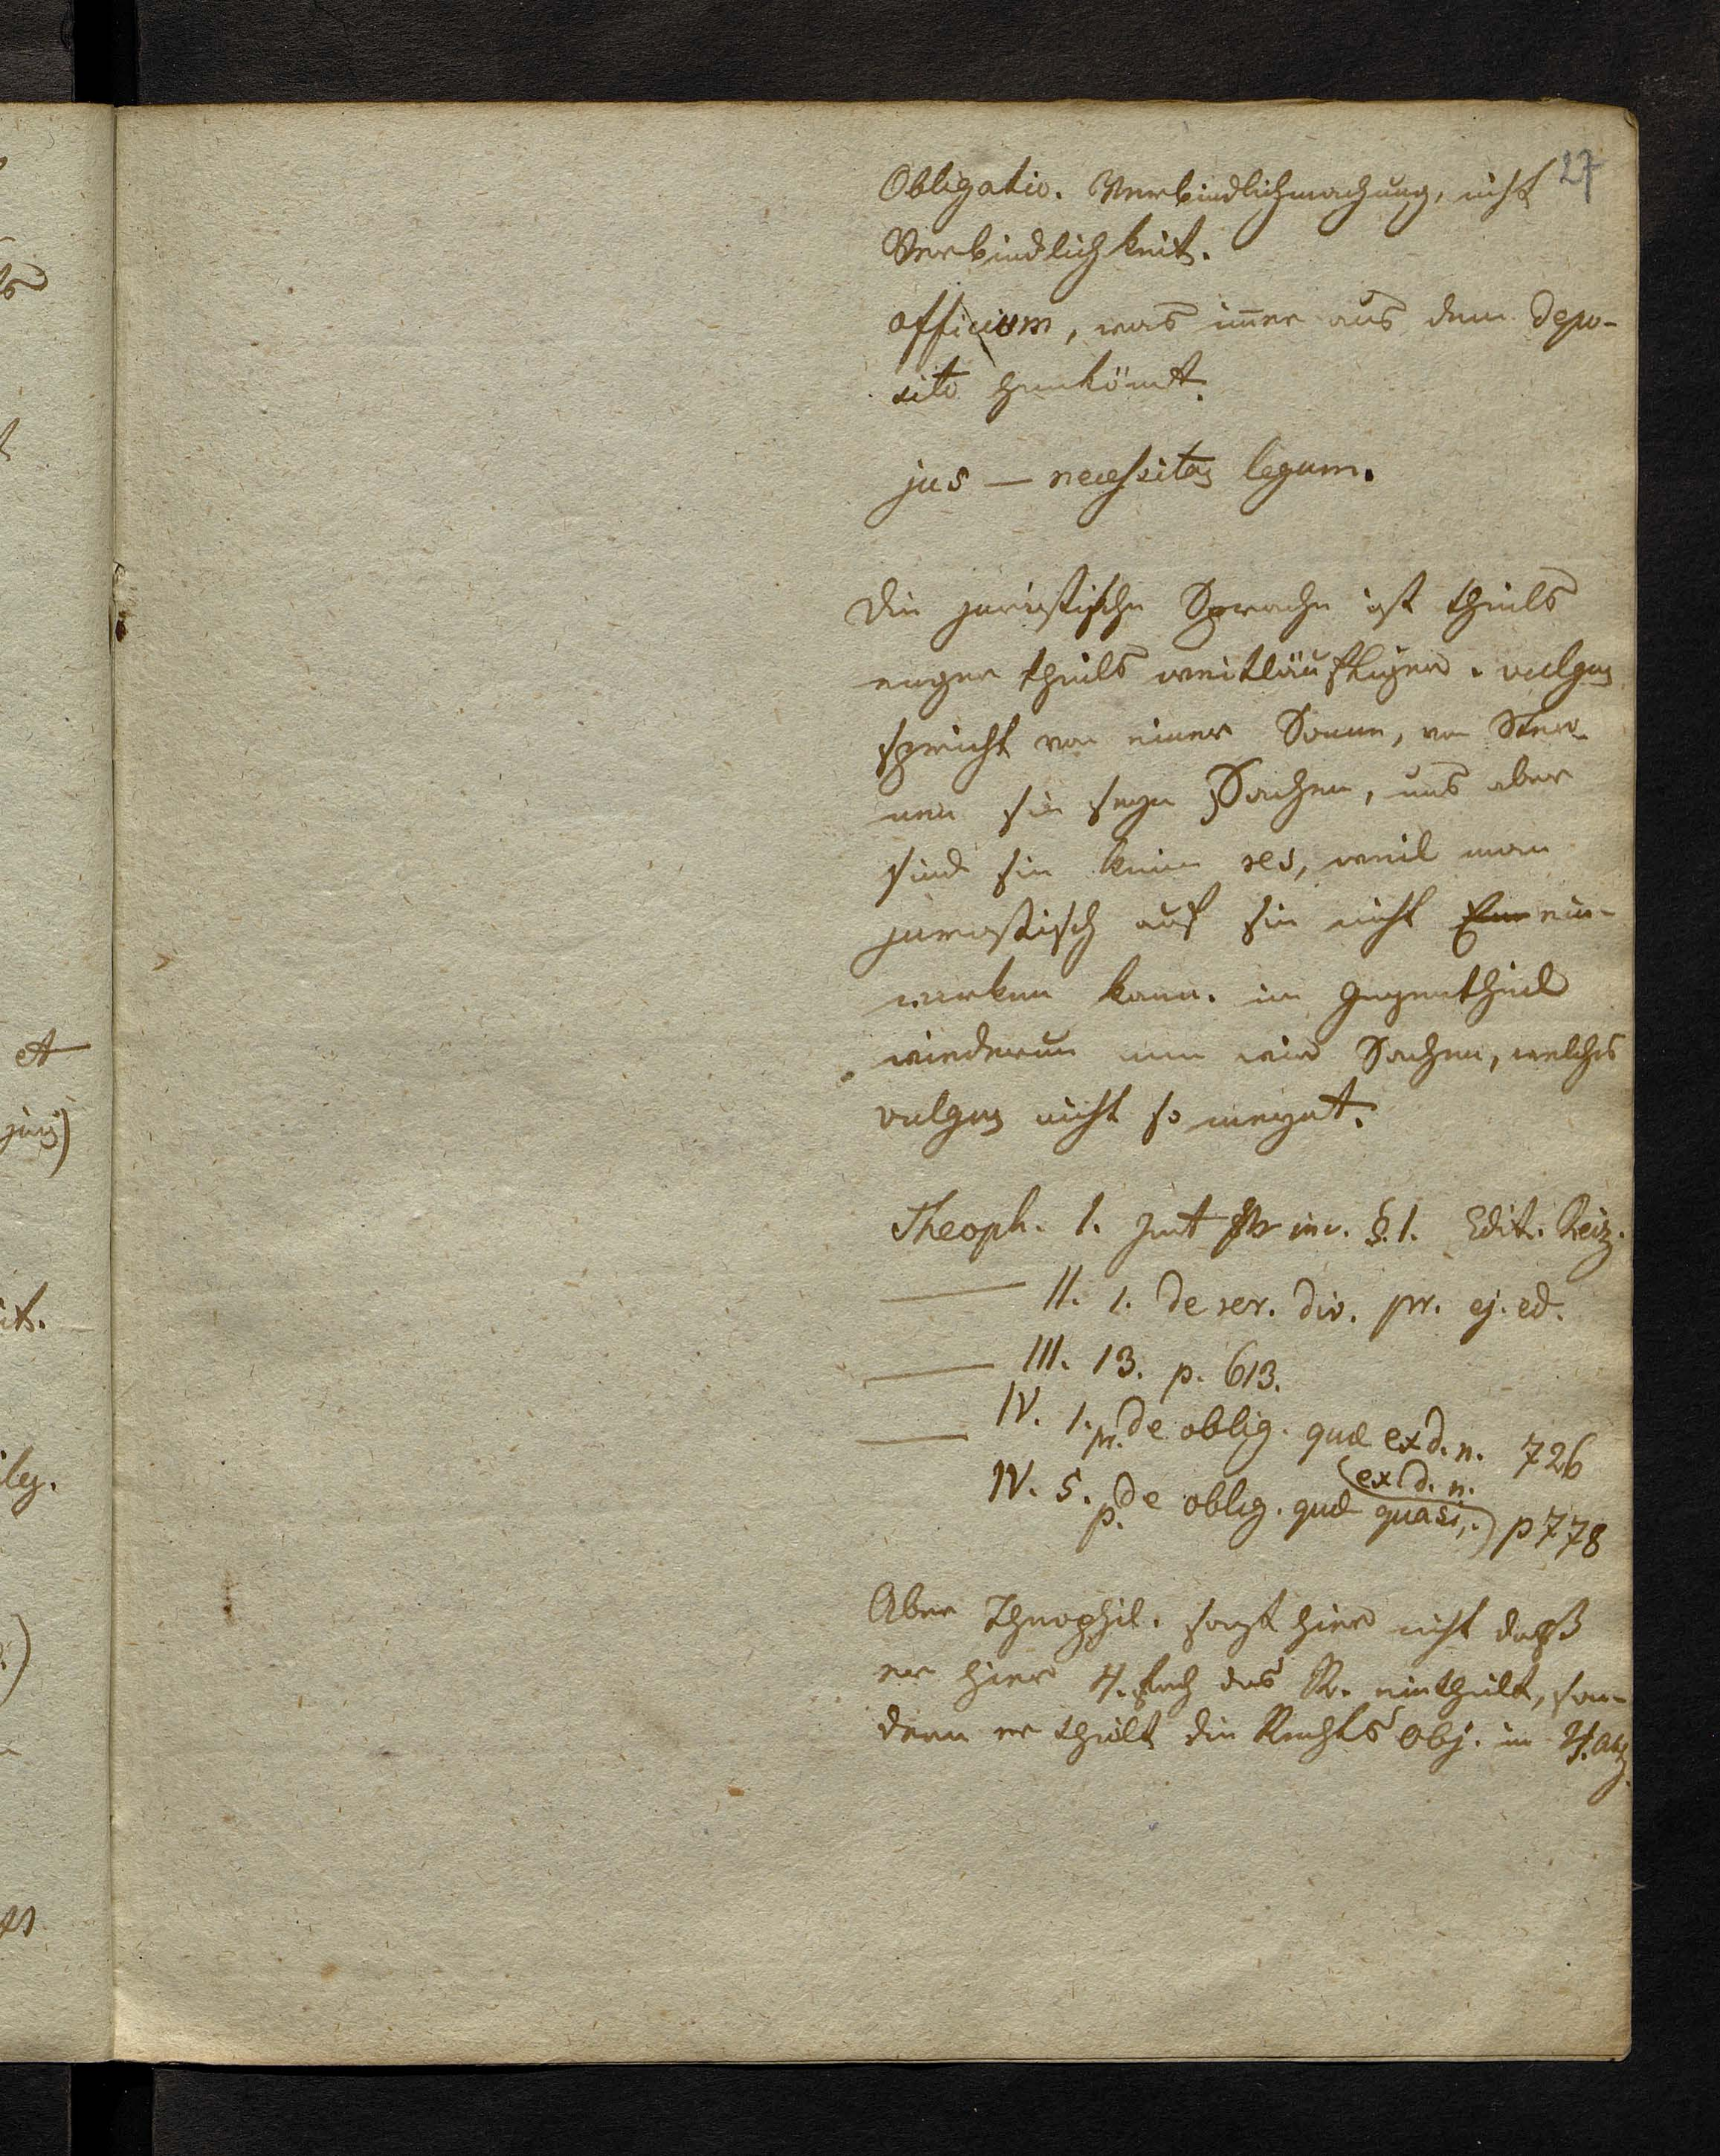 27
Obligatio. Verbindlichmachung, nicht
Verbindlichkeit.
officium, was immer aus dem depo-
sito herkömt.
jus — necessitas legum.
Die juristische Sprache ist theils
enger theils weitläuftiger. vulgus
spricht von einer Sonne, von Ster-
nen sie seyn Sachen, uns aber
sind sie keine res, weil man
juristisch auf sie nicht ein-
wirken kann. im Gegentheil
wiederum wir Sachen, welches
vulgus nicht so meynt.
Theoph. I. §. 1. Edit. Reiz.
— II. 1. de rer. div. pr. ej. ed.
— III. 13. p. 613.
— IV. 1. pr. de oblig. quæ ex d. n. 726
IV. 5. p. de oblig. quæ quasi ex d. n. p 778
Aber Theophil. sagt hier nicht daß
er hier 4.fach das R. eintheilt, son-
dern er theilt die Rechts Obj. in 4.
et
jus)